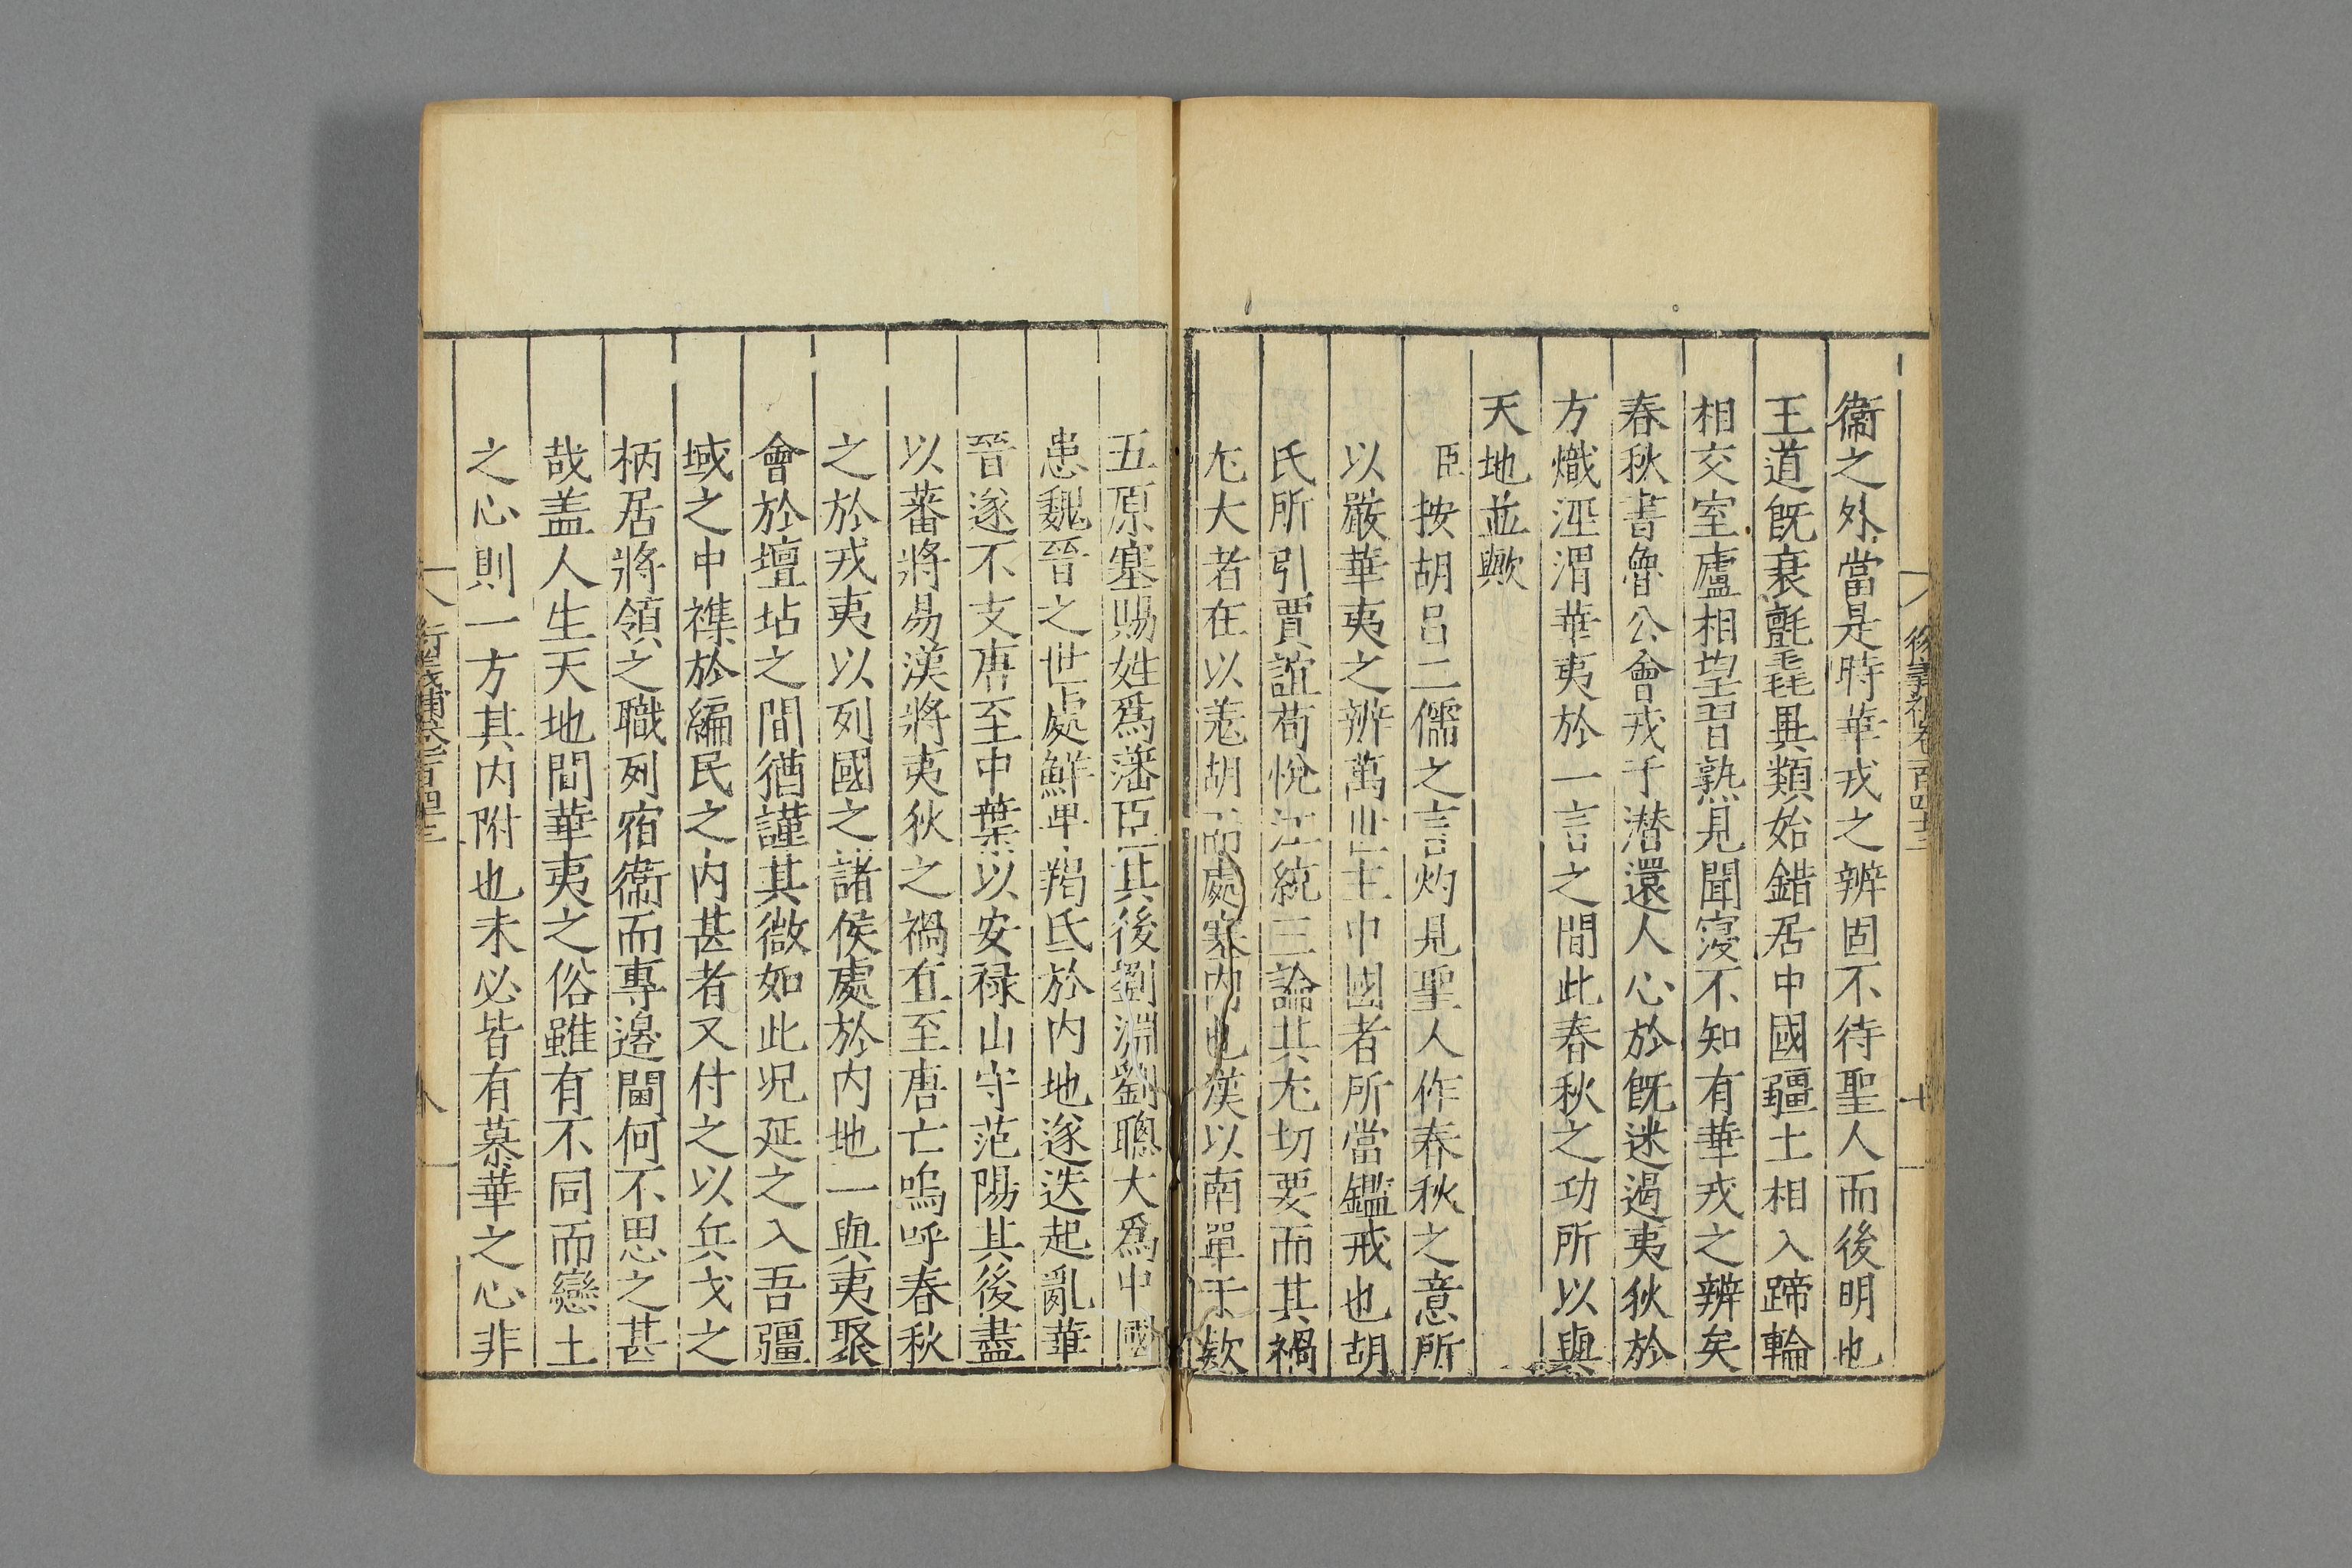 衞之外當是時華戎之辨固不待聖人而後明也
王道旣衰氈毳異類始錯居中國疆土相入蹄輪
相交室廬相望習熟見聞寖不知有華戎之辨矣
春秋書魯公會戎于潜還人心於旣迷遏夷狄於
方熾涇渭華夷於一言之間此春秋之功所以與
天地並歟
臣按胡呂二儒之言灼見聖人作春秋之意所
以嚴華夷之辨萬世主中國者所當鑑戒也胡
氏所引賈誼荀悅江統三論其尢切要而其禍
尢大者在以羗胡而處塞内也漢以南單于欵
五原塞賜姓爲藩臣其後劉淵劉聰大爲中國
患魏晉之世處鮮卑羯氐於内地遂迭起亂華
晉遂不支唐至中葉以安禄山守范陽其後盡
以蕃將易漢將夷狄之禍直至唐亡嗚呼春秋
之於戎夷以列國之諸侯處於内地一與夷聚
會於壇坫之間猶謹其微如此况延之入吾疆
域之中襍於編民之内甚者又付之以兵戈之
柄居將領之職列宿衞而專邉閫何不思之甚
哉盖人生天地間華夷之俗雖有不同而戀土
之心則一方其内附也未必皆有慕華之心非